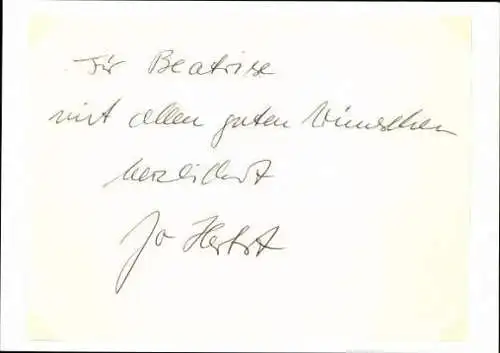 Für Beatrixe
mit allen guten Wünschen
herzlichst
Jo Herbst